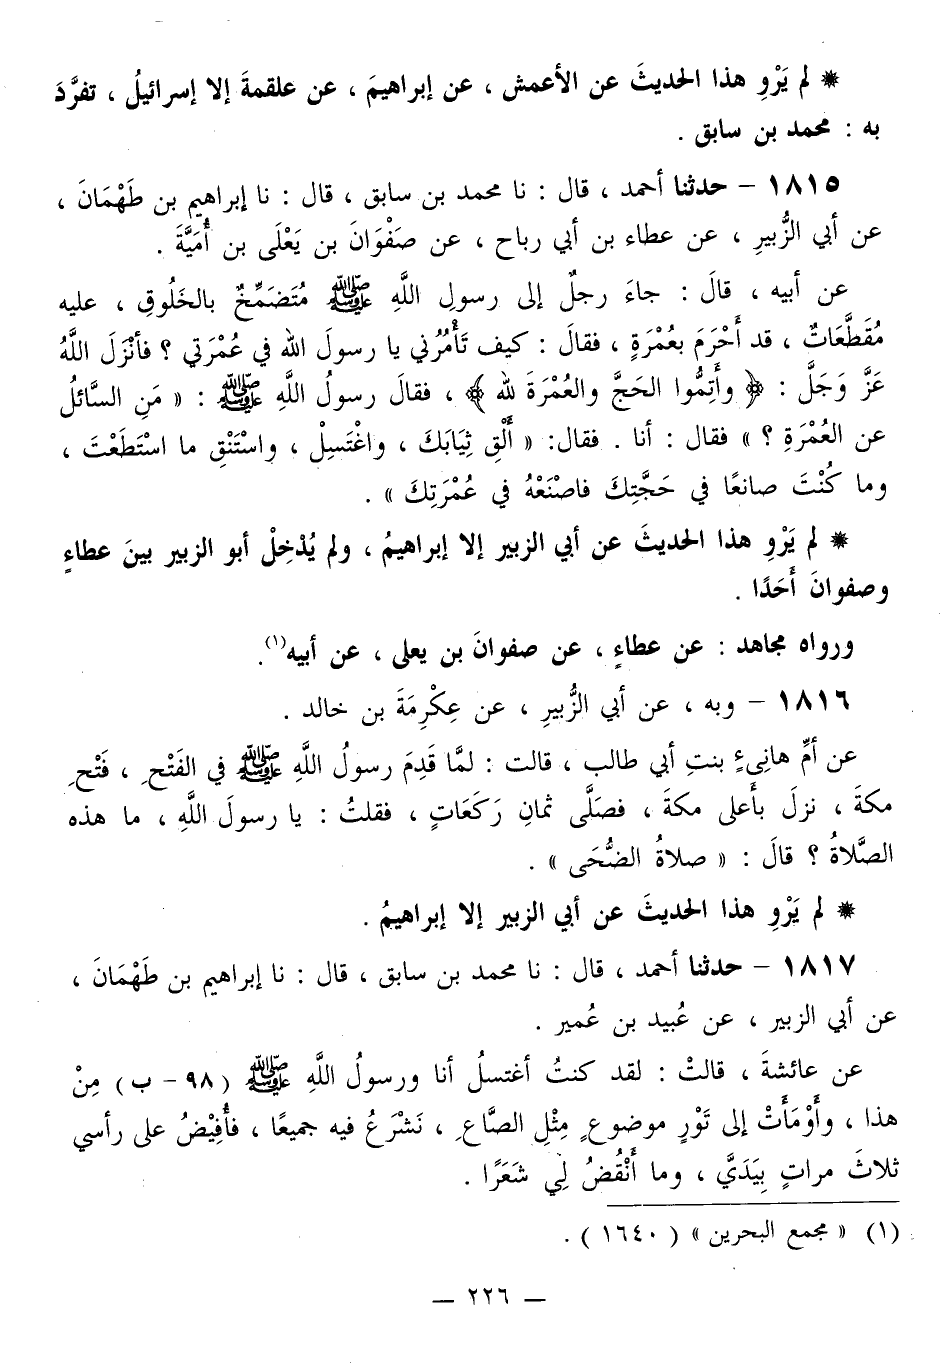 ❋ لم يَرْوِ هذا الحديثَ عن الأعمش ، عن إبراهيمَ ، عن علقمةَ إلا إسرائيلُ ، تفرَّدَ
به : محمد بن سابق .
١٨١٥ – حدثنا أحمد ، قال : نا محمد بن سابق ، قال : نا إبراهيم بن طَهْمَانَ ،
عن أبي الزُّبيرِ ، عن عطاء بن أبي رباح ، عن صَفْوَانَ بن يَعْلَى بن أُمَيَّةَ .
عن أبيه ، قالَ : جاءَ رجلٌ إلى رسولِ اللَّهِ ﷺ مُتَضَمِّخٌ بالخَلُوقِ ، عليه
مُقَطَّعَاتٌ ، قد أَحْرَمَ بعُمْرَةٍ ، فقالَ : كيف تَأْمُرُني يا رسولَ الله في عُمْرَتي ؟ فأنْزَلَ اللَّهُ
عَزَّ وَجَلَّ : ﴿ وأَتِمُّوا الحَجَّ والعُمْرَةَ لله ﴾ ، فقالَ رسولُ اللَّهِ ﷺ : « مَنِ السَّائلُ
عن العُمْرَةِ ؟ » فقال : أنا . فقال: « أَلْقِ ثِيَابَكَ ، واغْتَسِلْ ، واسْتَنْقِ ما اسْتَطَعْتَ ،
وما كُنْتَ صانعًا في حَجَّتِكَ فاصْنَعْهُ في عُمْرَتِكَ » .
❋ لم يَرْوِ هذا الحديثَ عن أبي الزبير إلا إبراهيمُ ، ولم يُدْخِلْ أبو الزبير بينَ عطاءٍ
وصفوانَ أَحَدًا .
ورواه مجاهد : عن عطاءٍ ، عن صفوانَ بن يعلى ، عن أبيه(١).
١٨١٦ – وبه ، عن أبي الزُّبيرِ ، عن عِكْرِمَةَ بن خالد .
عن أمِّ هانِىءٍ بنتِ أبي طالب ، قالت : لمَّا قَدِمَ رسولُ اللَّهِ ﷺ في الفَتْحِ ، فَتْحِ
مكةَ ، نزلَ بأَعلى مكةَ ، فصَلَّى ثمانِ رَكَعَاتٍ ، فقلتُ : يا رسولَ اللَّهِ ، ما هذه
الصَّلاةُ ؟ قالَ : « صلاةُ الضُّحَى » .
❋ لم يَرْوِ هذا الحديثَ عن أبي الزبير إلا إبراهيمُ .
١٨١٧ – حدثنا أحمد ، قال : نا محمد بن سابق ، قال : نا إبراهيم بن طَهْمَانَ ،
عن أبي الزبير ، عن عُبيد بن عُمير .
عن عائشةَ ، قالتْ : لقد كنتُ أغتسلُ أنا ورسولُ اللَّهِ ﷺ ( ٩٨ – ب ) مِنْ
هذا ، وأَوْمَأَتْ إلى تَوْرٍ موضوعٍ مِثْلِ الصَّاعِ ، نَشْرَعُ فيه جميعًا ، فأُفِيْضُ على رأسي
ثلاثَ مراتٍ بِيَدَيَّ ، وما أَنْقُضُ لِي شَعَرًا .
(١) « مجمع البحرين » ( ١٦٤٠ ) .
— ٢٢٦ —